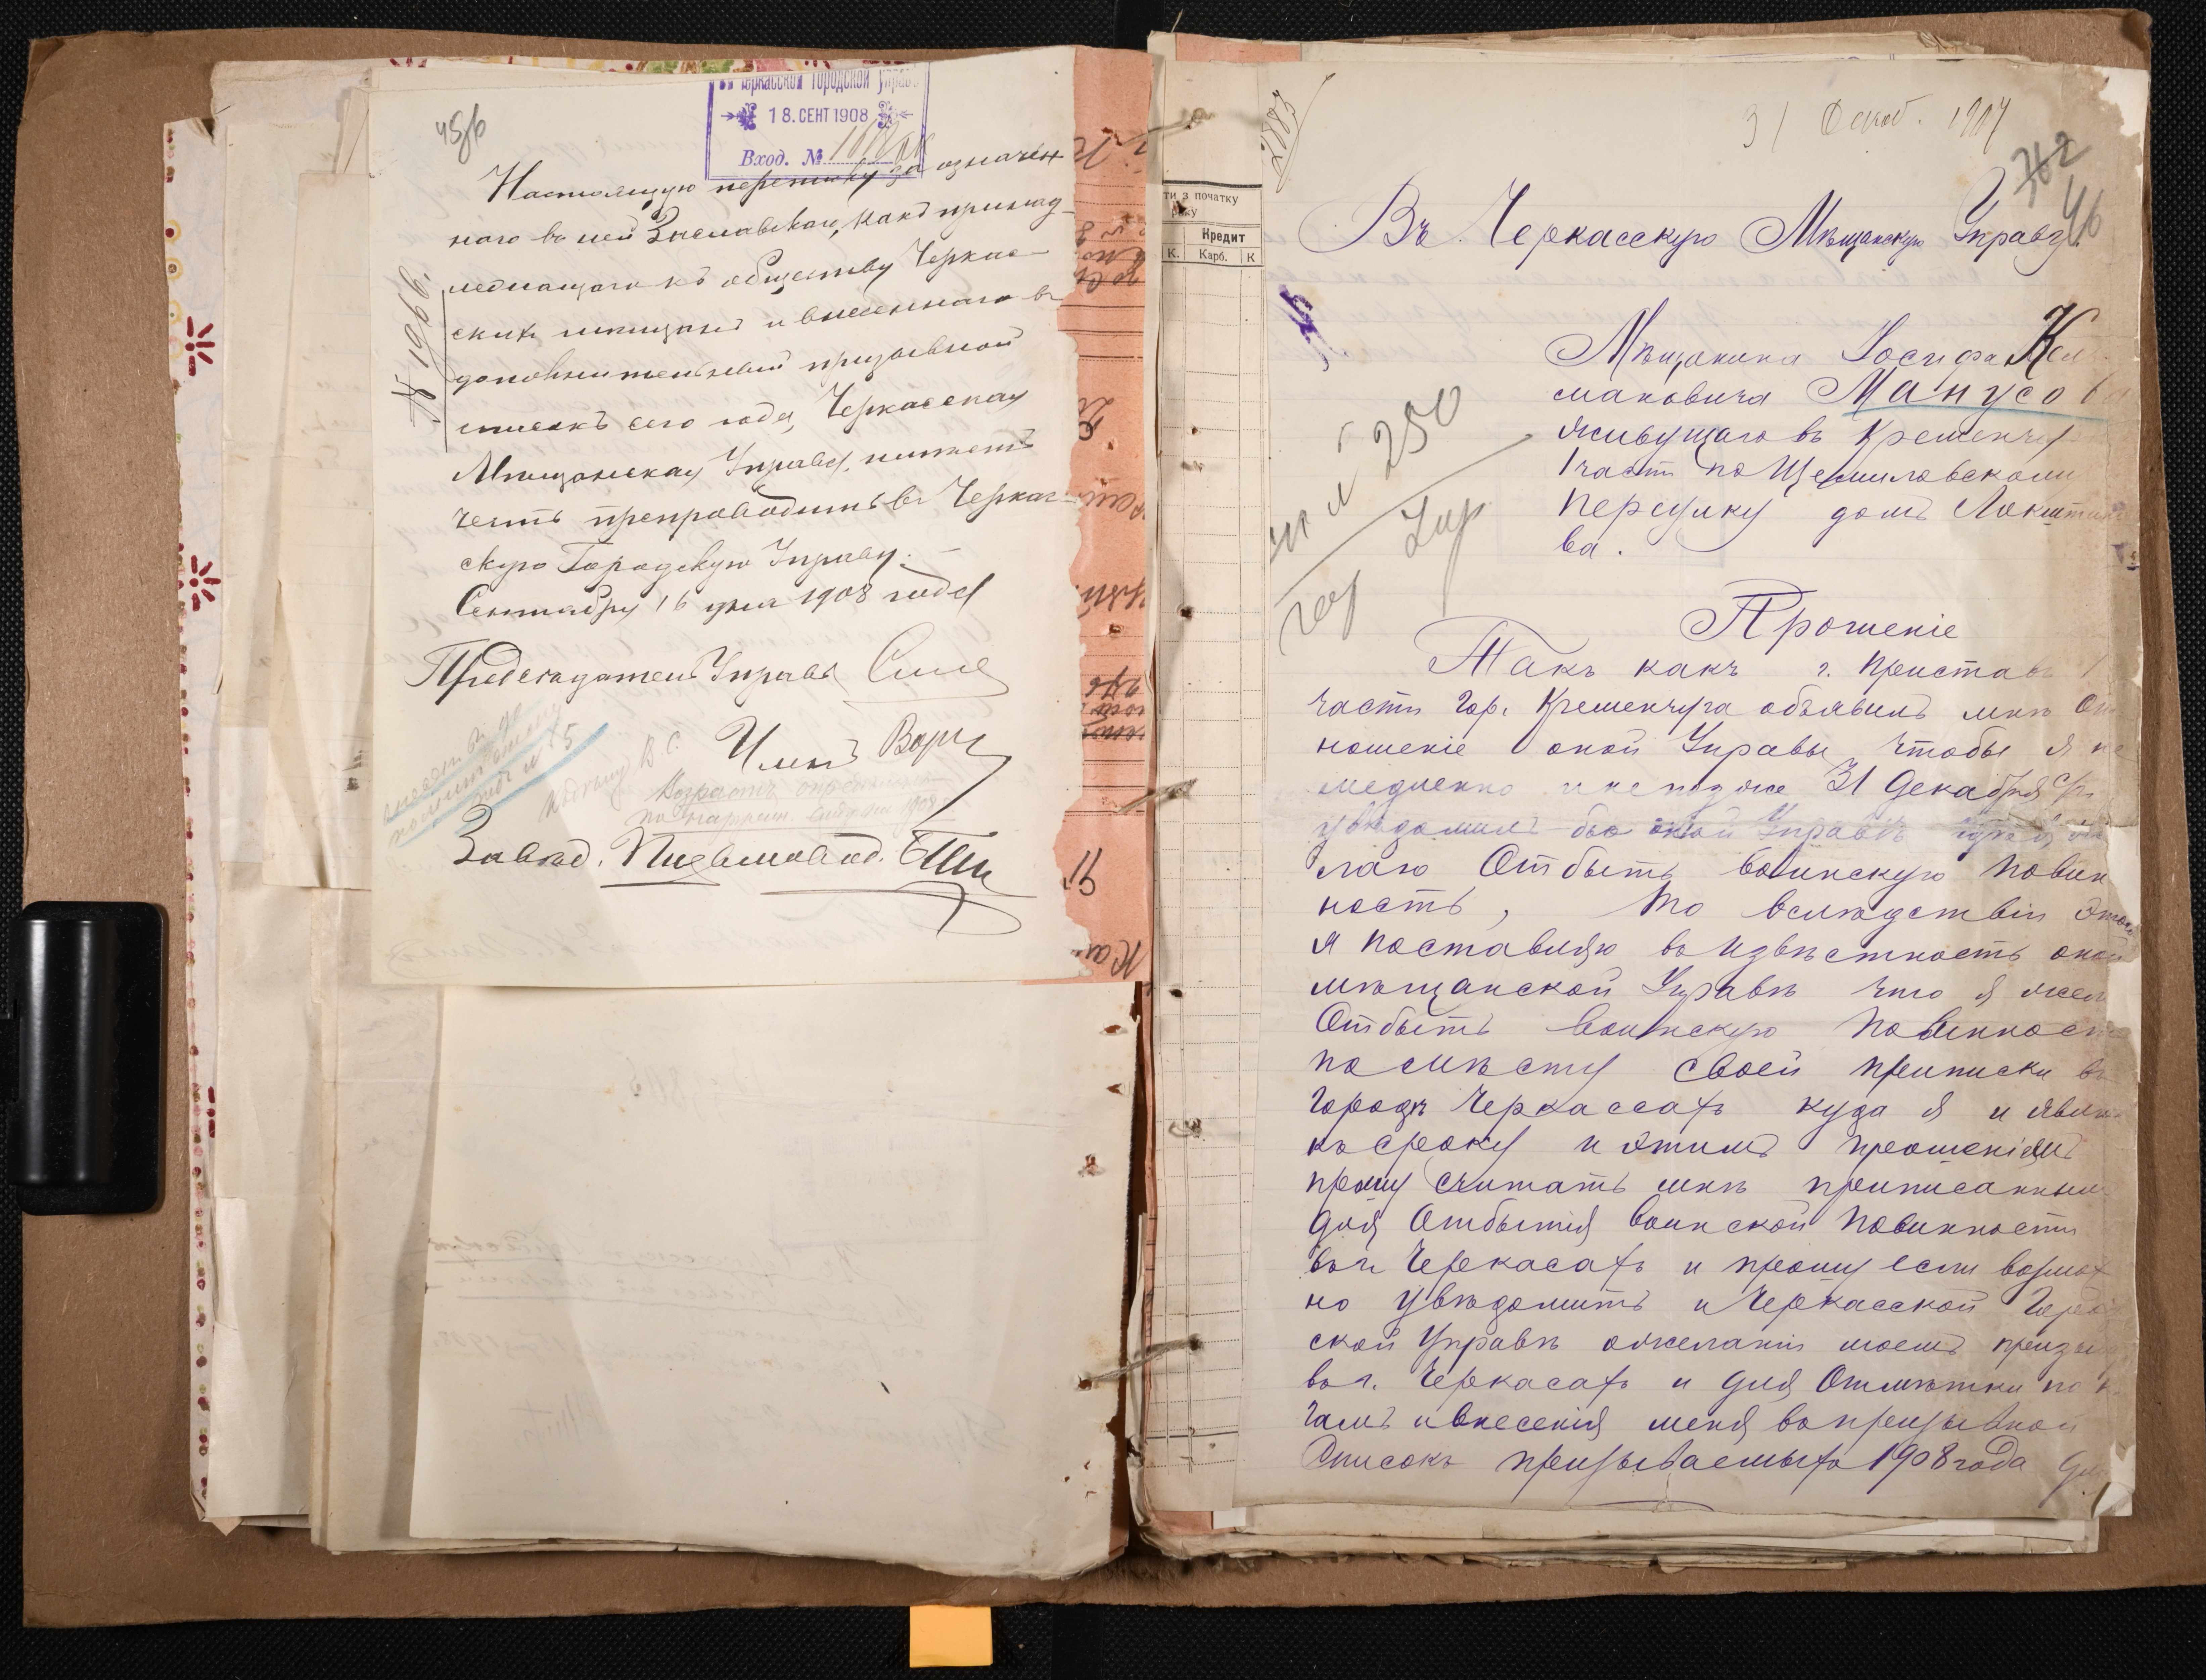 45б
Черкасской Городской Управ
18. СЕНТ 1908
Вход. №
Настоящую переписку за означен
наго въ ней Заславскаго, какъ принад-
лежащаго къ обществу Черкас-
скихъ мещанъ и внесеннаго въ
дополнительный призывной
списокъ сего года, Черкасская
Мѣщанская Управа, имѣетъ
честь препроводить въ Черкас-
скую Городскую Управу.
Сентября 16 дня 1908 года
№ 1966.
Председатель Управы
Членъ
Завѣд. Письмовод.
31 Декаб. 1907
2883
342
46
Въ Черкасскую Мѣщанскую Управу.
Мѣщанина Іосифа
маковича Манусова
Живущаго въ Кременчуг
1 части по Щемиловскому
переулку домъ
ва.
№ 250
Прошеніе
Такъ какъ г. Приставъ 1
части гор. Кременчуга объявилъ мнѣ От
ношеніе оной Управы, чтобы я не
медленно и не позже 31 Декабря с/г.
увѣдомилъ бы оной Управѣ где я же
лаю Отбыть воинскую повин
ность, то вслѣдствіи этого
я поставляю въ извѣстность оной
мѣщанской Управѣ что я жел
Отбыть воинскую повинность
по мѣсту своей приписки въ
городѣ Черкассахъ куда я и явлюсь
къ сроку и этимъ прошеніемъ
прошу Считать мнѣ приписаннымъ
для Отбытія воинской повинности
въ г. Черкасахъ и прошу если возмож
но увѣдомить и Черкасской Город
ской Управѣ о желаніи моемъ призыв
въ г. Черкасахъ и для Отмѣтки по к
гамъ и внесенія меня въ призывной
Списокъ призываемыхъ 1908 года
ти з початку
року
Кредит
К. Карб. К